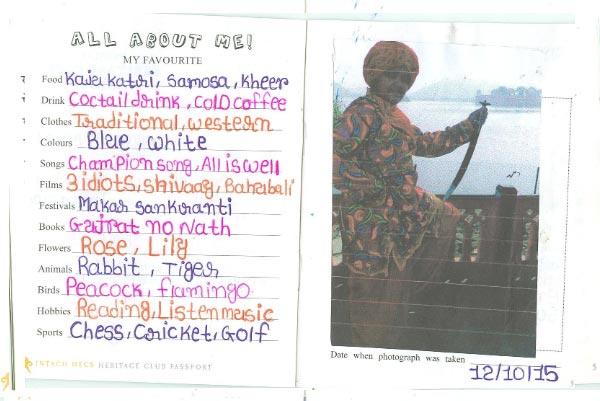 ALL ABOUT ME!
MY FAVOURITE
Food Kaju katri, Samosa, Kheer
Drink Coctail drink, cold coffee
Clothes Traditional, western
Colours Blue, white
Songs Champion song, All is well
Films 3 idiots, shivaay, Bahubali
Festivals Makar sankranti
Books Gujrat no Nath
Flowers Rose, Lily
Animals Rabbit, Tiger
Birds Peacock, flamingo
Hobbies Reading, Listen music
Sports Chess, Cricket, Golf
INTACH HECS HERITAGE CLUB PASSPORT
Date when photograph was taken
12/10/15
5